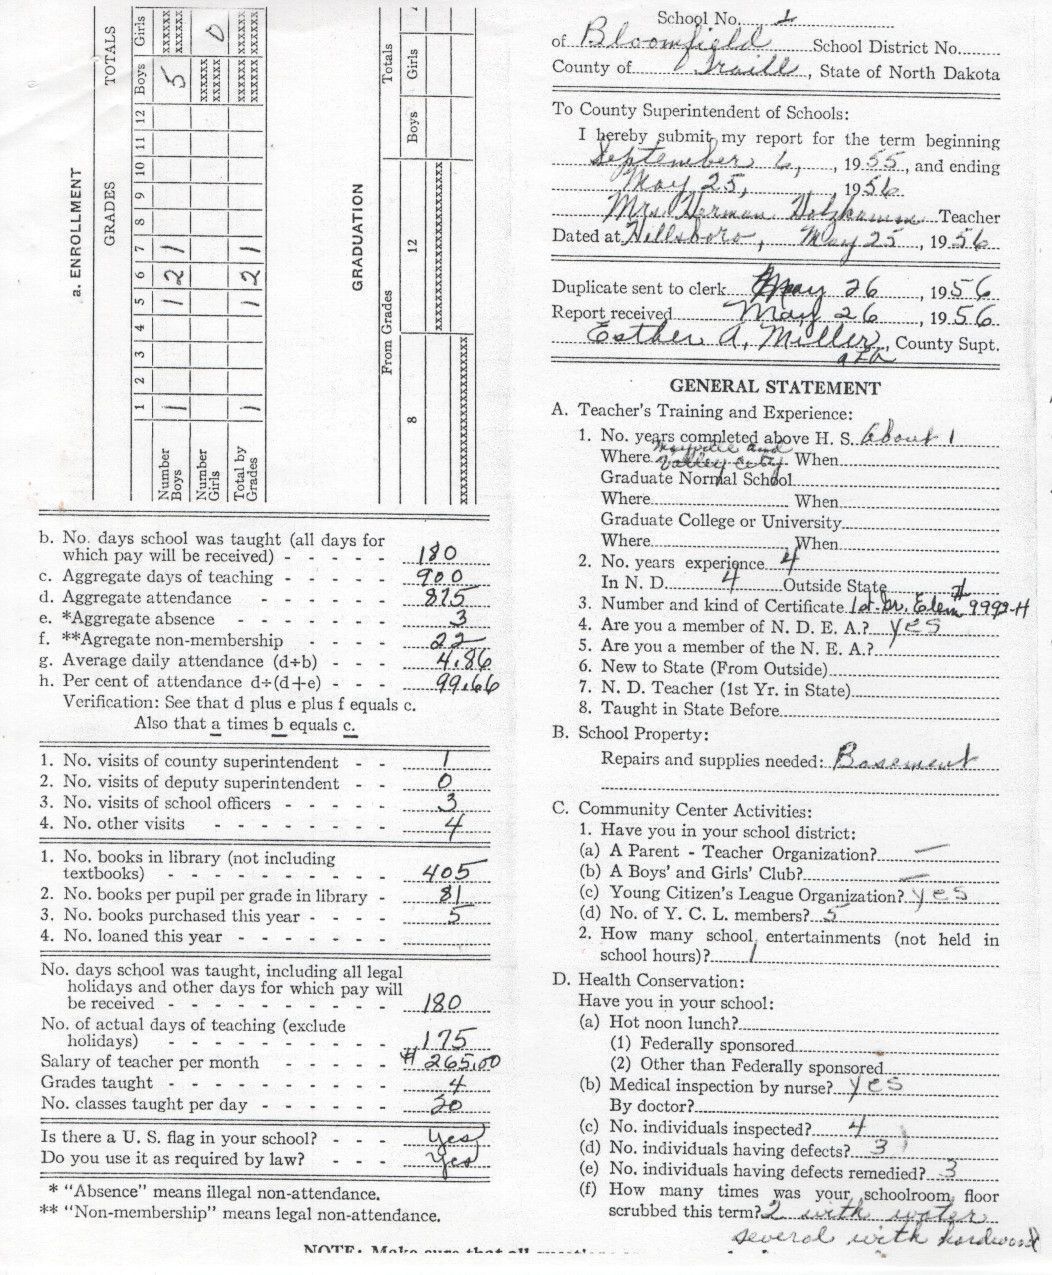 a. ENROLLMENT
GRADES TOTALS
1 2 3 4 5 6 7 8 9 10 11 12 Boys Girls
Number Boys 1 1 2 1 5 xxxxxx xxxxxx
Number Girls xxxxxx xxxxxx 0
Total by Grades 1 1 2 1 xxxxxx xxxxxx xxxxxx xxxxxx
GRADUATION
From Grades Totals
8 12 Boys Girls
b. No. days school was taught (all days for
which pay will be received) - - - - - 180
c. Aggregate days of teaching - - - - - 900
d. Aggregate attendance - - - - - - 875
e. *Aggregate absence - - - - - - 3
f. **Agregate non-membership - - - - 22
g. Average daily attendance (d÷b) - - - 4.86
h. Per cent of attendance d÷(d+e) - - - 99.66
Verification: See that d plus e plus f equals c.
Also that a times b equals c.
1. No. visits of county superintendent - - 1
2. No. visits of deputy superintendent - - 0
3. No. visits of school officers - - - - - 3
4. No. other visits - - - - - - - 4
1. No. books in library (not including
textbooks) - - - - - - - - 405
2. No. books per pupil per grade in library - 81
3. No. books purchased this year - - - - 5
4. No. loaned this year - - - - - -
No. days school was taught, including all legal
holidays and other days for which pay will
be received - - - - - - - - - 180
No. of actual days of teaching (exclude
holidays) - - - - - - - - 175
Salary of teacher per month - - - - - # 265.00
Grades taught - - - - - - - - - 4
No. classes taught per day - - - - - 20
Is there a U. S. flag in your school? - - - Yes
Do you use it as required by law? - - - Yes
* "Absence" means illegal non-attendance.
** "Non-membership" means legal non-attendance.
NOTE: Make sure that all
School No. 1
of Bloomfield School District No.
County of Traill, State of North Dakota
To County Superintendent of Schools:
I hereby submit my report for the term beginning
September 6, , 1955, and ending
May 25, , 1956
Mrs. Herman Holzkamm Teacher
Dated at Hillsboro, May 25, 1956
Duplicate sent to clerk May 26, 1956
Report received May 26, 1956
Esther A. Miller, County Supt.
GENERAL STATEMENT
A. Teacher's Training and Experience:
1. No. years completed above H. S. about 1
Mayville and
Where Valley City When
Graduate Normal School
Where When
Graduate College or University
Where When
2. No. years experience 4
In N. D. 4 Outside State
3. Number and kind of Certificate 1st. Gr. Elem # 9992-H
4. Are you a member of N. D. E. A.? yes
5. Are you a member of the N. E. A.?
6. New to State (From Outside)
7. N. D. Teacher (1st Yr. in State)
8. Taught in State Before
B. School Property:
Repairs and supplies needed: Basement
C. Community Center Activities:
1. Have you in your school district:
(a) A Parent - Teacher Organization? —
(b) A Boys' and Girls' Club? —
(c) Young Citizen's League Organization? yes
(d) No. of Y. C. L. members? 5
2. How many school entertainments (not held in
school hours)? 1
D. Health Conservation:
Have you in your school:
(a) Hot noon lunch?
(1) Federally sponsored
(2) Other than Federally sponsored
(b) Medical inspection by nurse? yes
By doctor?
(c) No. individuals inspected? 4
(d) No. individuals having defects? 3
(e) No. individuals having defects remedied? 3
(f) How many times was your schoolroom floor
scrubbed this term? 2 with water
several with hardwood